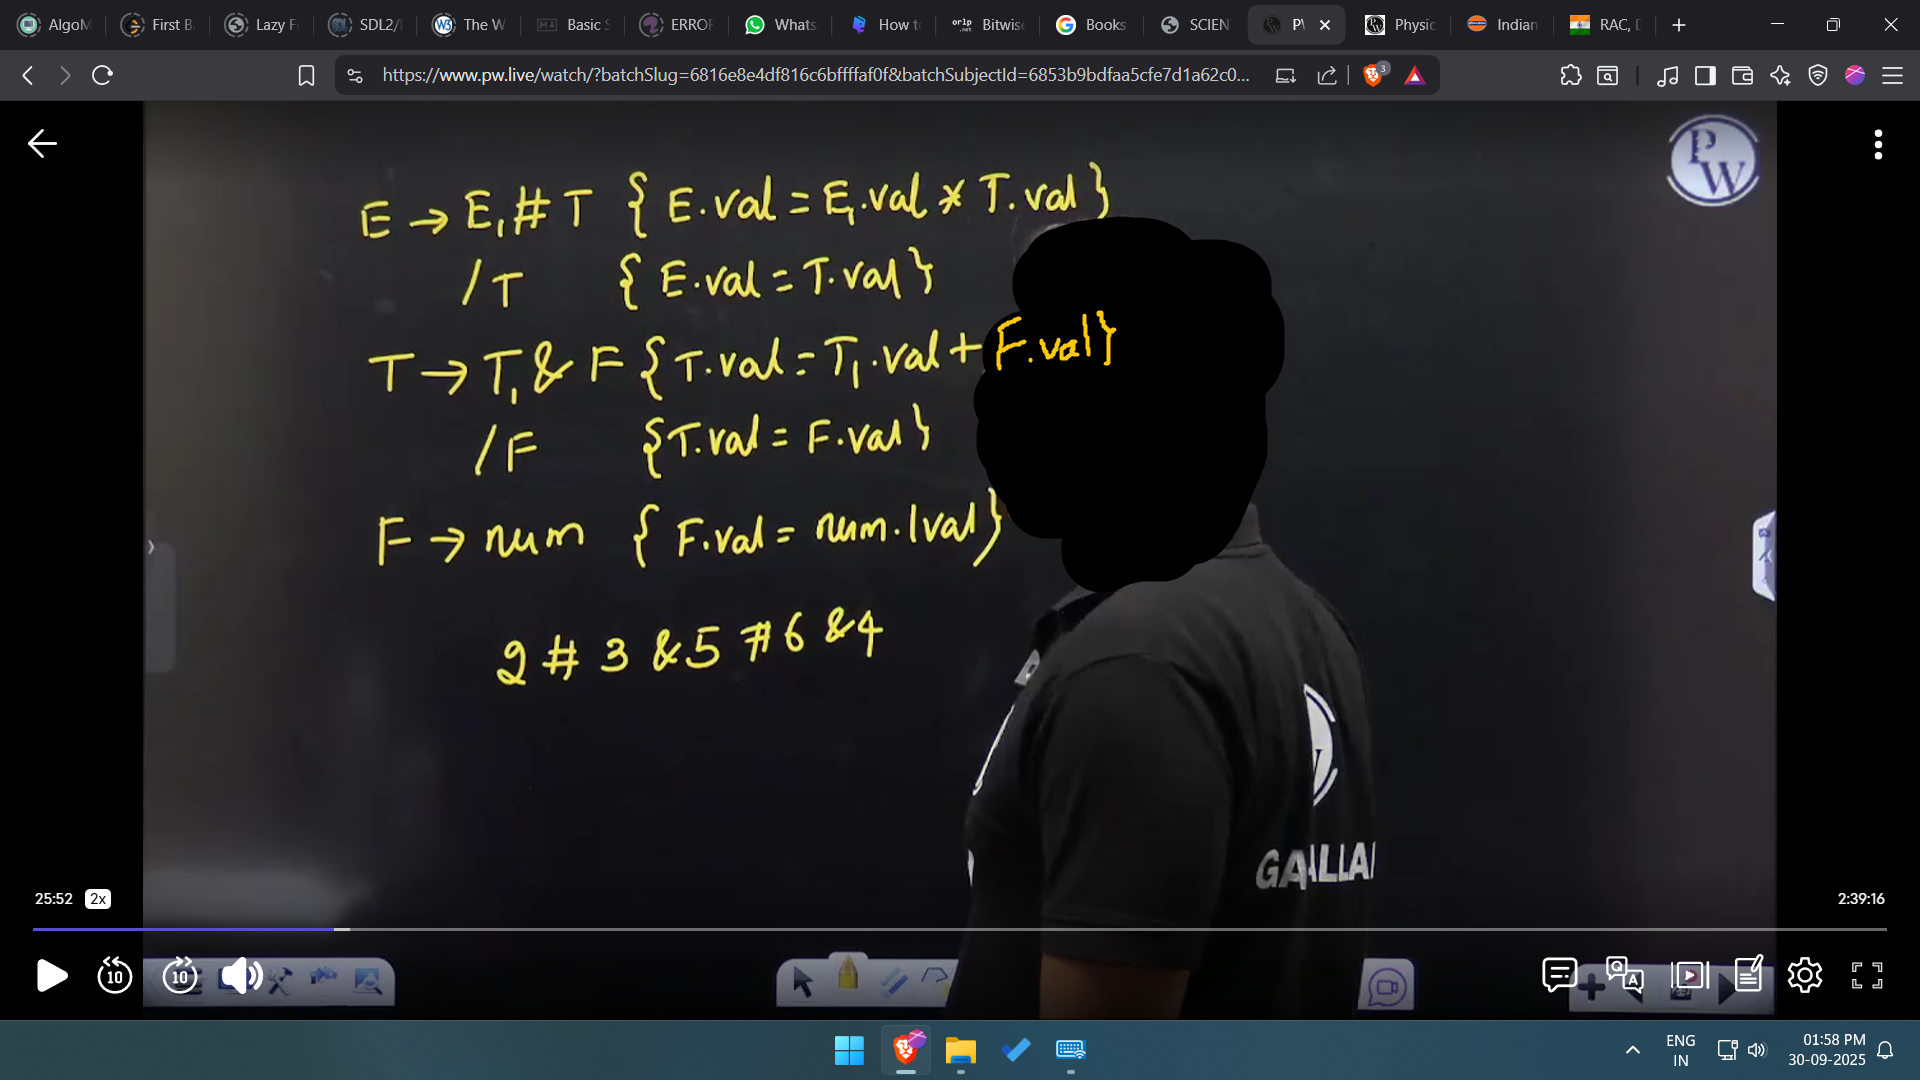 AlgoM First B Lazy F SDL2/ The W Basic S ERROR Whats How t Bitwis Books SCIEN P Physic Indian RAC, D
https://www.pw.live/watch/?batchSlug=6816e8e4df816c6bffffaf0f&batchSubjectId=6853b9bdfaa5cfe7d1a62c0... 3
P W
E → E₁ # T { E.val = E₁.val * T.val }
/ T { E.val = T.val }
T → T₁ & F { T.val = T₁.val + F.val }
/ F { T.val = F.val }
F → num { F.val = num.lval }
2 # 3 & 5 # 6 & 4
25:52 2x 2:39:16
10 10
ENG IN
01:58 PM
30-09-2025